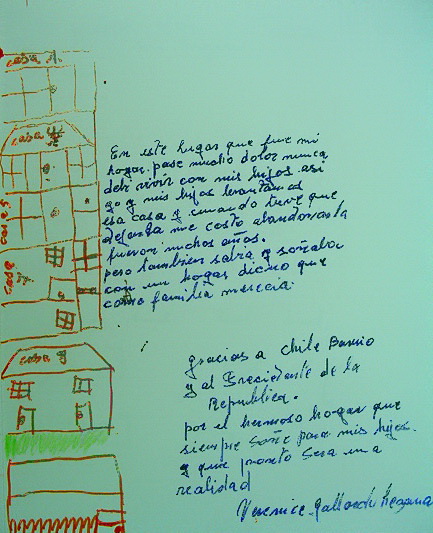 casa 1.
casa
casa 5
case
casa 9
En este lugar que fue mi
hogar. pase mucho dolor nunca
debi vivir con mis hijos asi
yo y mis hijos levantamos
esa casa y cuando tuve que
dejarla me costo abandonarla
fueron muchos años.
pero tambien sabia y soñaba
con un hogar dicno que
como familia merecia.
gracias a Chile Barrio
y al Precidente de la
Republica.
por el hermoso hogar que
siempre soñe para mis hijos.
y que pronto sera una
realidad
Verenice Gallardo